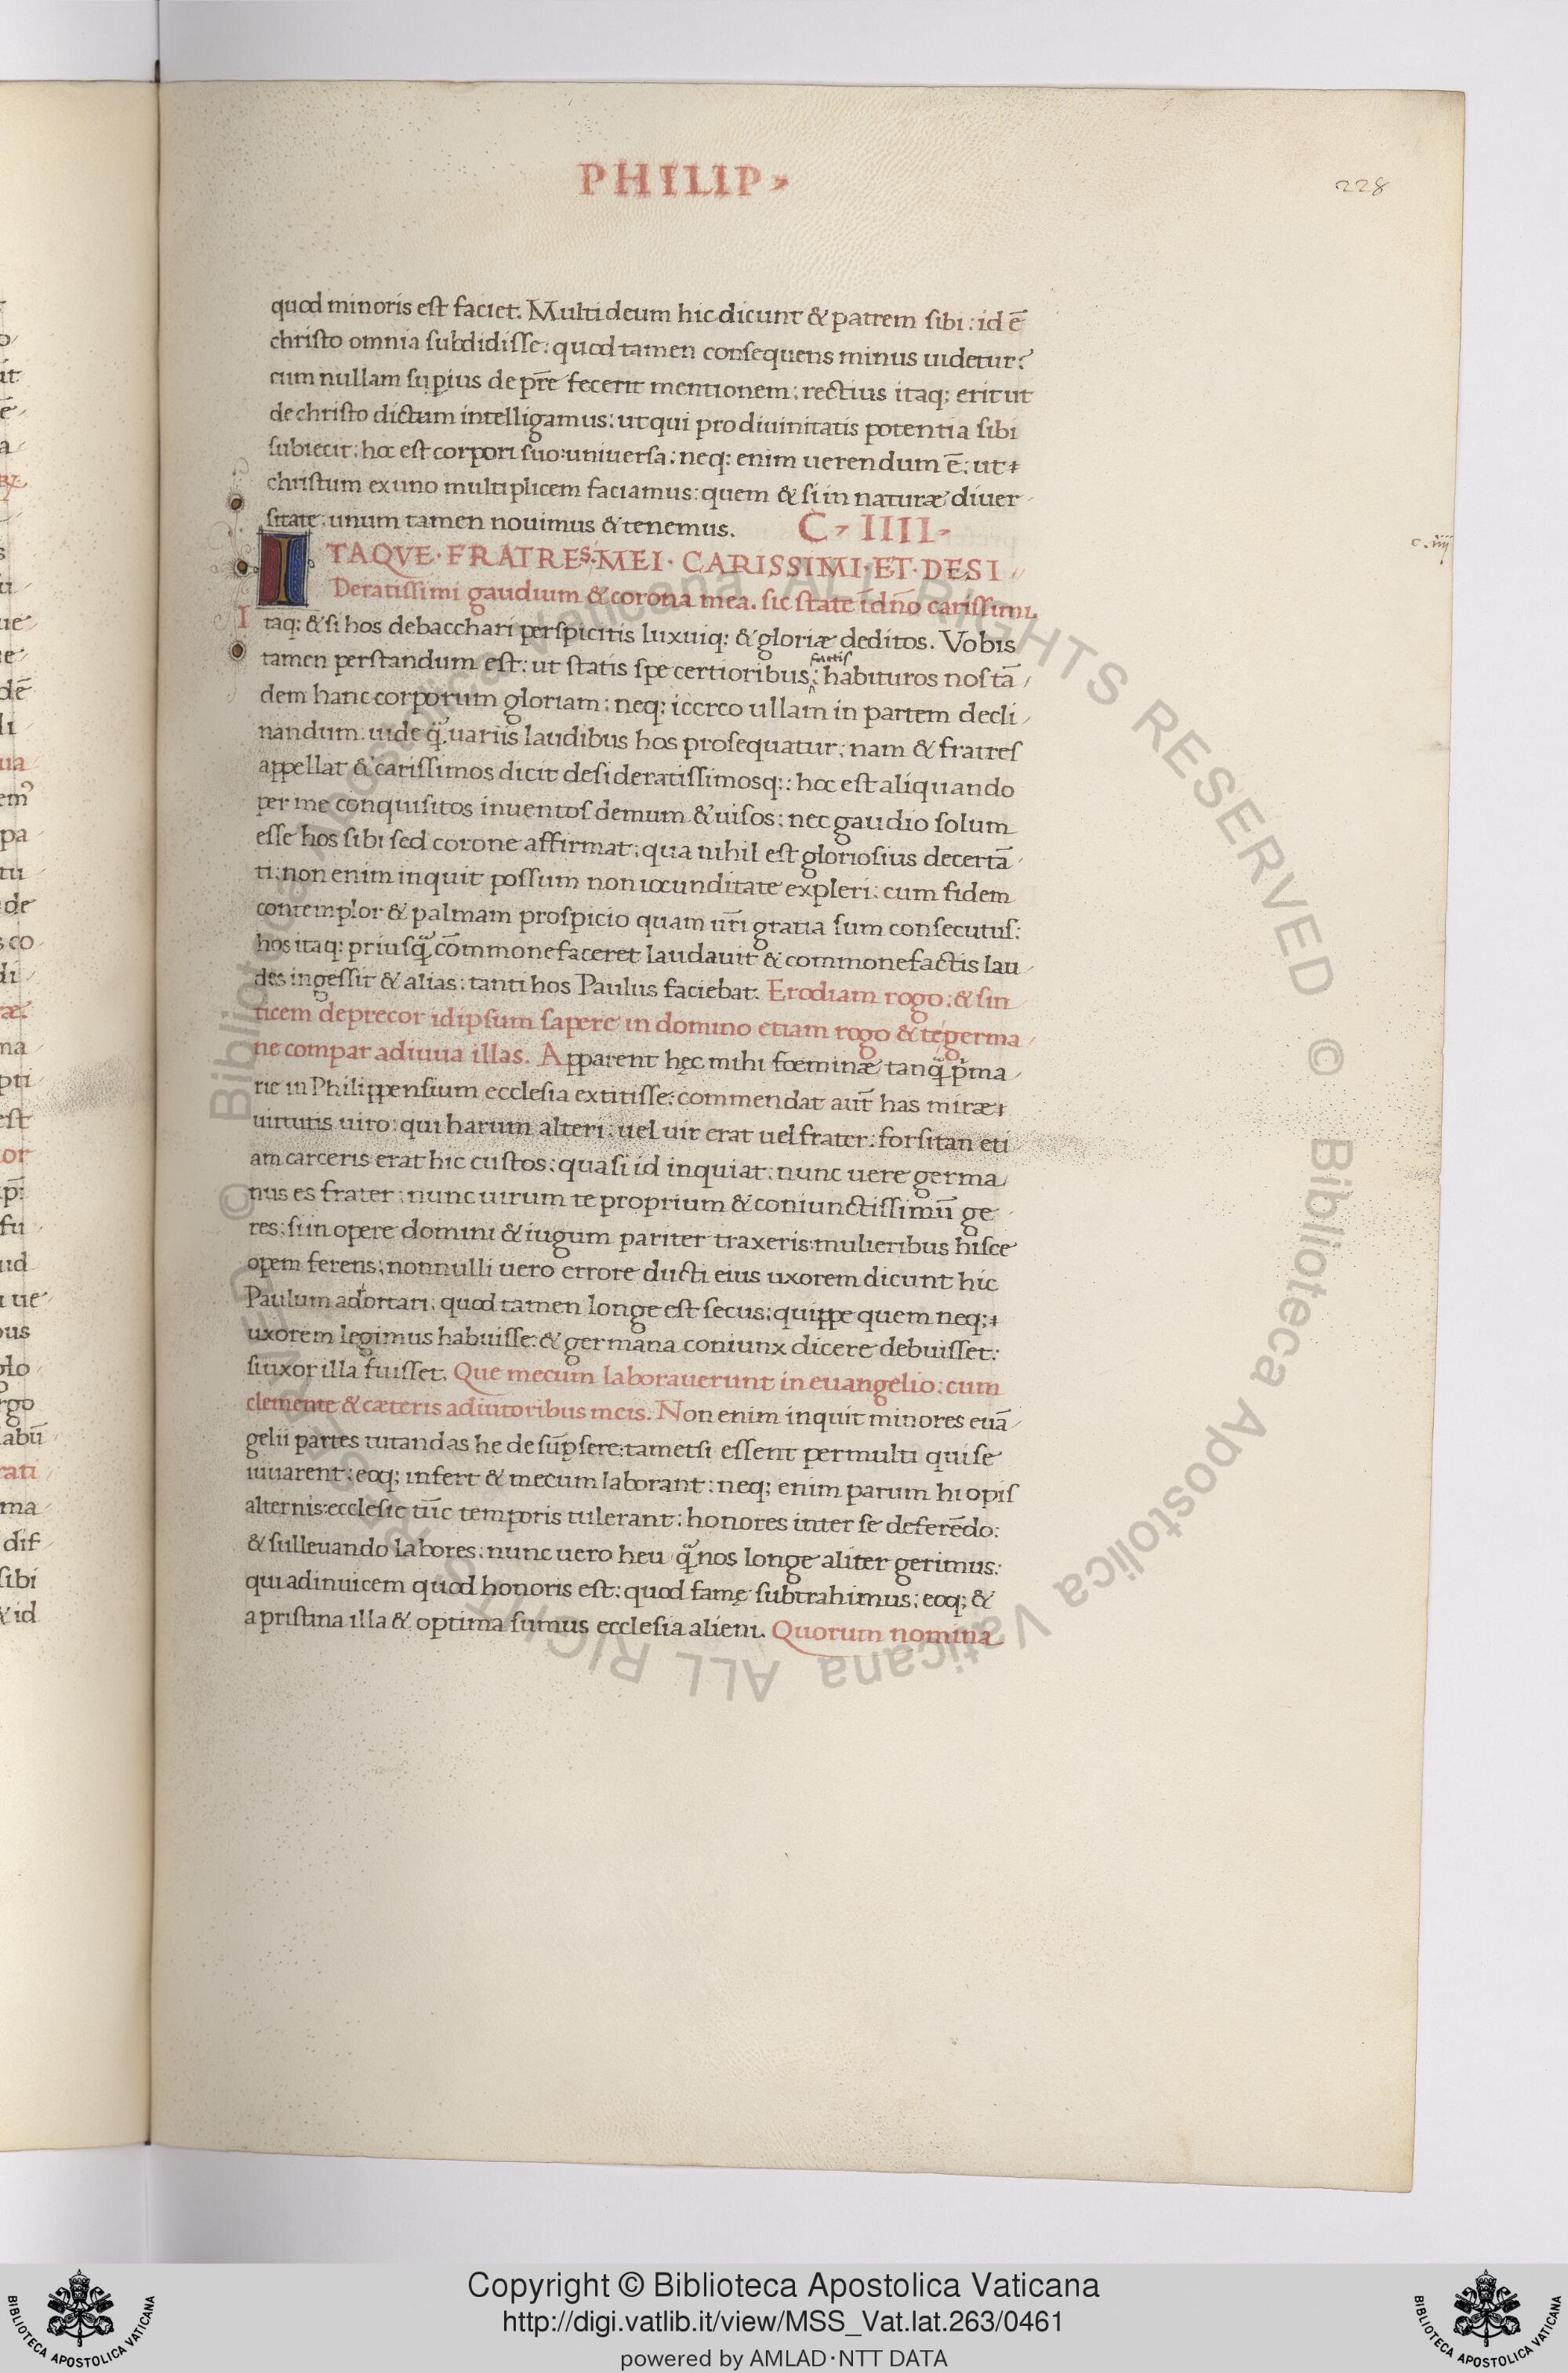 PHILIP
228
quod minoris est faciet. Multi deum hic dicunt & patrem sibi: id ē
christo omnia subdidisse: quod tamen consequens minus uidetur:
cum nullam supius de pr̄e fecerit mentionem: rectius itaq; erit ut
de christo dictum intelligamus: ut qui pro diuinitatis potentia sibi
subiecit: hoc est corpori suo: uniuersa: neq; enim uerendum ē: ut
christum ex uno multiplicem faciamus: quem & si in naturæ diuer
sitate: unum tamen nouimus & tenemus. C IIII
c. iiij
ITAQVE· FRATRES· MEI· CARISSIMI· ET· DESI
Deratissimi gaudium & corona mea. sic state ī dn̄o carissimi.
Itaq; & si hos debacchari perspicitis luxuiq; & gloriæ deditos. Vobis
tamen perstandum est: ut statis spe certioribus: habituros nos tā
dem hanc corporum gloriam: neq; iccrco ullam in partem decli
nandum. uide q̄ uariis laudibus hos prosequatur: nam & fratres
appellat & carissimos dicit desideratissimosq;: hoc est aliquando
per me conquisitos inuentos demum & uisos: nec gaudio solum
esse hos sibi sed corone affirmat: qua nihil est gloriosius decertā
ti: non enim inquit possum non iocunditate expleri: cum fidem
contemplor & palmam prospicio quam ur̄i gratia sum consecutus:
hos itaq; priusq̄ cōmmonefaceret laudauit & commonefactis lau
des ingessit & alias: tanti hos Paulus faciebat. Erodiam rogo: & sin
ticem deprecor idipsum sapere in domino etiam rogo & te germa
ne compar adiuua illas. Apparent hęc mihi fœminæ tanq̄ pͥma
rie in Philippensium ecclesia extitisse: commendat aut̄ has miræ
uirtutis uiro: qui harum alteri: uel uir erat uel frater: forsitan eti
am carceris erat hic custos: quasi id inquiat: nunc uere germa
nus es frater: nunc uirum te proprium & coniunctissimū ge
res: si in opere domini & iugum pariter traxeris: mulieribus hisce
opem ferens: nonnulli uero errore ducti eius uxorem dicunt hic
Paulum adortari: quod tamen longe est secus: quippe quem neq;
uxorem legimus habuisse: & germana coniunx dicere debuisset:
si uxor illa fuisset. Que mecum laborauerunt in euangelio: cum
clemente & cæteris adiutoribus meis. Non enim inquit minores euā
gelii partes tutandas he desūpsere: tametsi essent permulti qui se
iuuarent: eoq; infert & mecum laborant: neq; enim parum hi opis
alternis: ecclesie tūc temporis tulerant: honores inter se deferēdo:
& subleuando labores: nunc uero heu q̄ nos longe aliter gerimus:
qui adinuicem quod honoris est: quod famę subtrahimus: eoq; &
a pristina illa & optima sumus ecclesia alieni. Quorum nomina
Copyright © Biblioteca Apostolica Vaticana
http://digi.vatlib.it/view/MSS_Vat.lat.263/0461
powered by AMLAD·NTT DATA